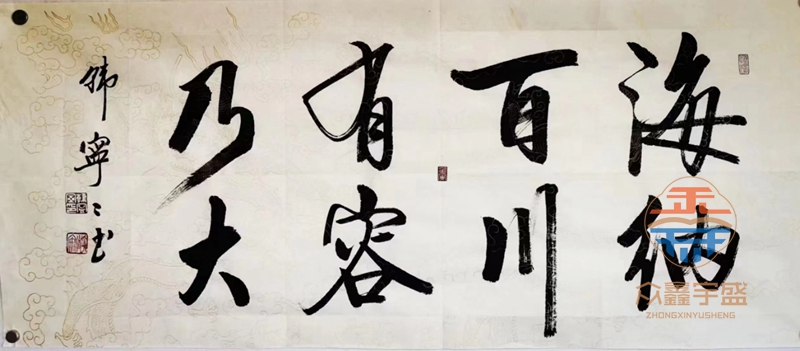 海纳
百川
有容
乃大
韩寧〻书
众鑫宇盛
ZHONGXINYUSHENG